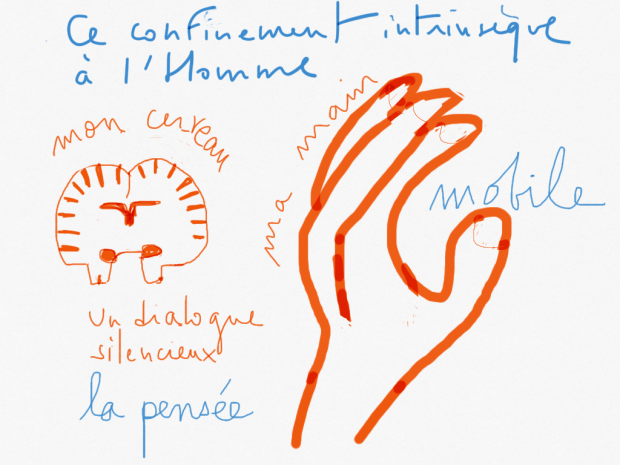 Ce confinement intrinsèque
à l'Homme
mon cerveau
ma main
mobile
un dialogue
silencieux
la pensée